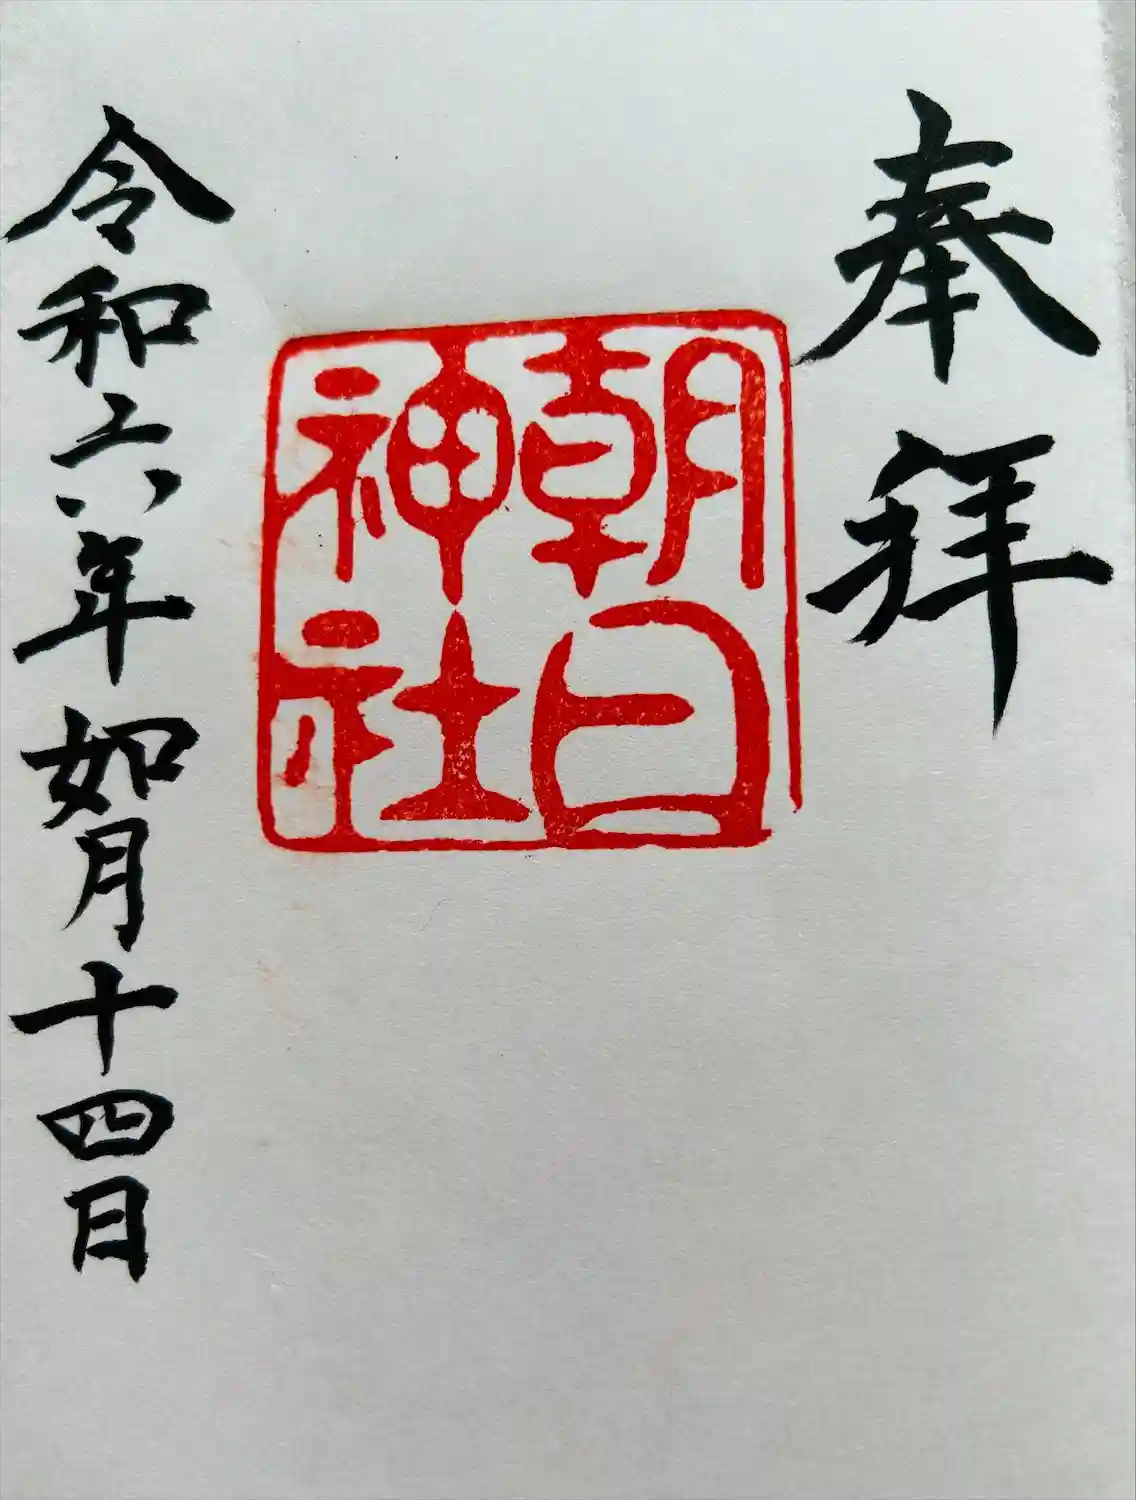 奉拝
朝日
神社
令和六年如月十四日